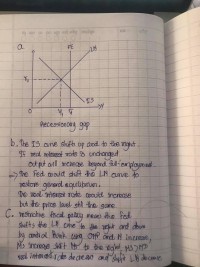 a.
r
FE
LM
r₁
IS
0
Y₁
Y
Recessionary gap
b. The IS curve shift up and to the right.
If real interest rate is unchanged
output will increase beyond full-employment.
the Fed would shift the LM curve to
restore general equilibrium.
The real interest rate would increase
but the price level still the same.
C. restrictive fiscal policy mean the Fed
shifts the LM curve to the right and down
by
and M increases,
Ms increase shift to the right
real interest rate decreases and shift LM